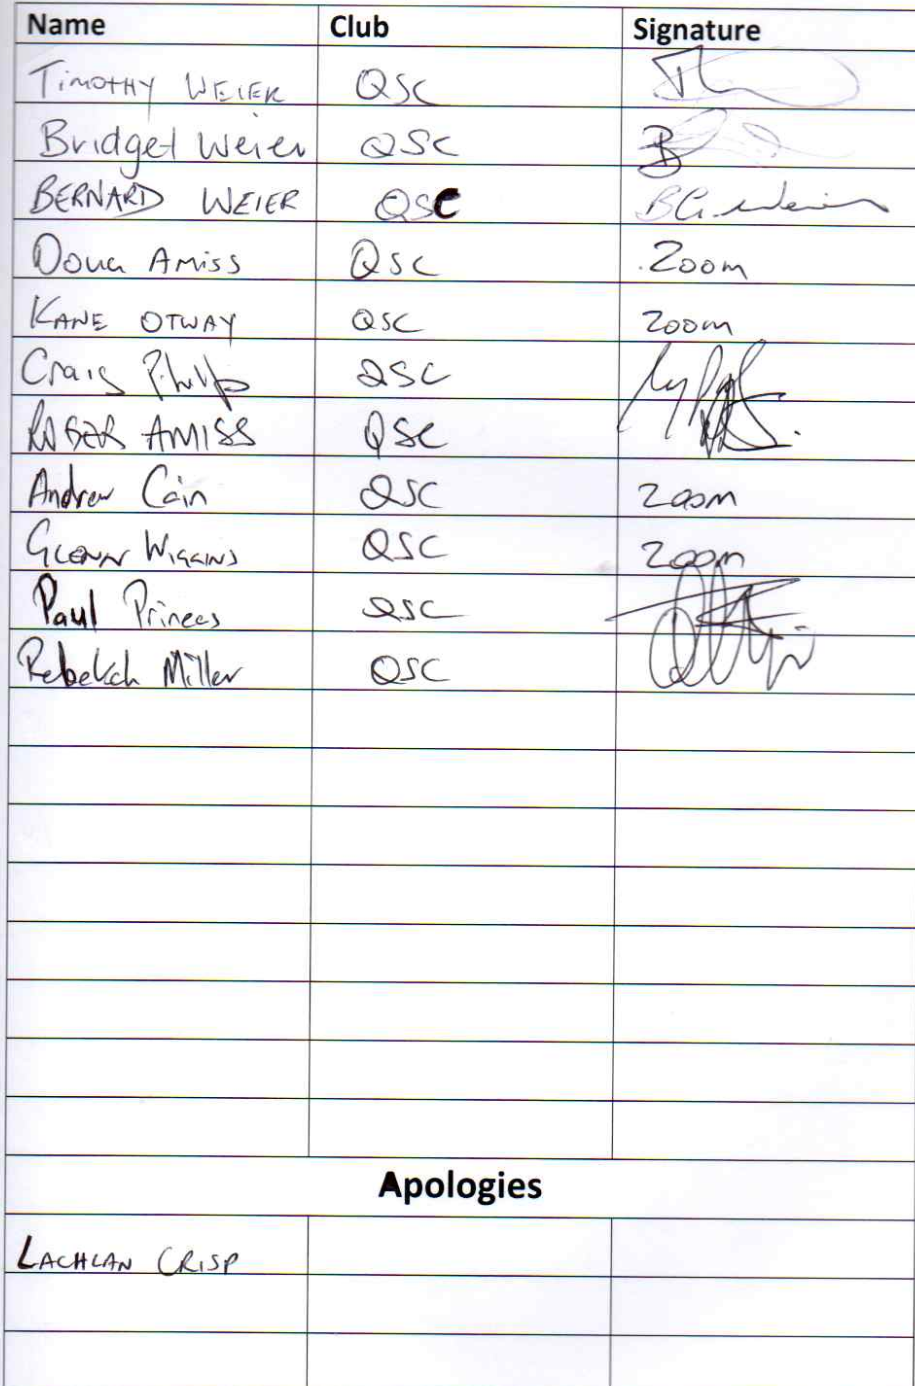 Name Club Signature
TIMOTHY WEIER QSC
Bridget Weier QSC
BERNARD WEIER QSC
Doug Amiss QSC Zoom
KANE OTWAY QSC Zoom
Craig Phillips QSC
ROGER AMISS QSC
Andrew Cain QSC Zoom
GLENN WIGGINS QSC Zoom
Paul Princes QSC
Rebekah Miller QSC
Apologies
LACHLAN CRISP